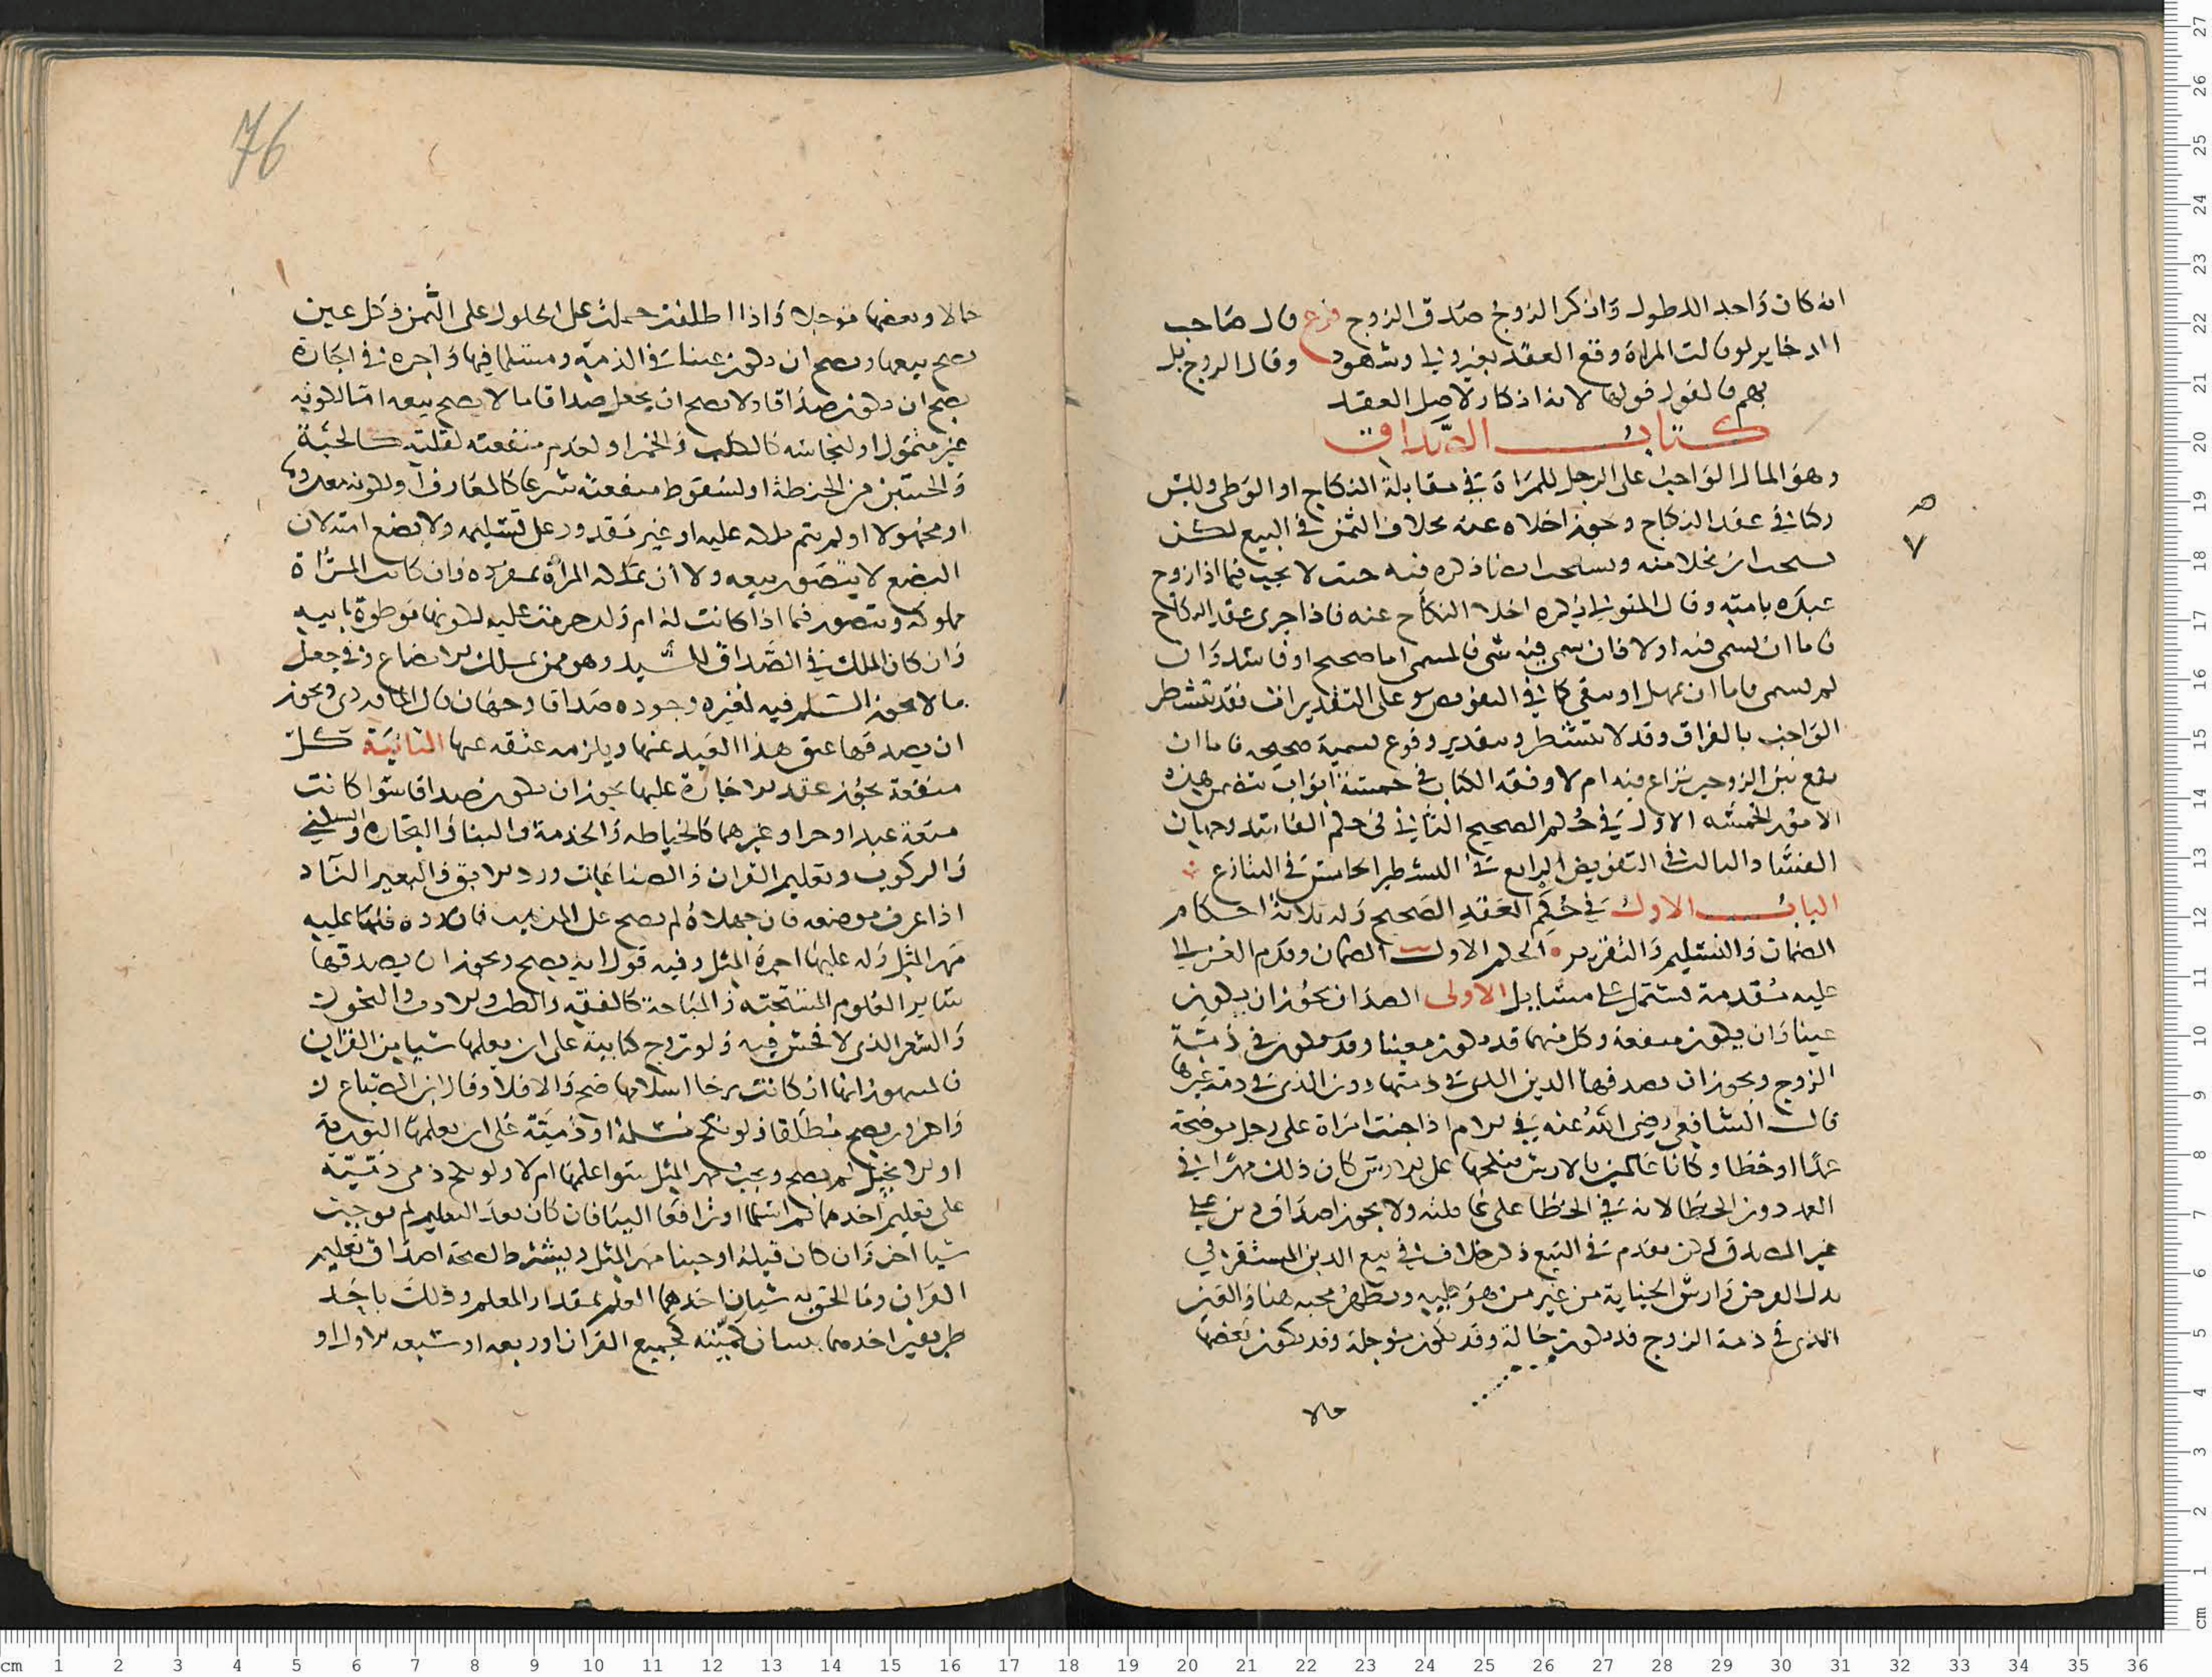 انه كان واحد الدطول وان ذكر الزوج صدق الزوج فرع قال صاحب
الدخاير لو قالت المراة وقع العقد بغير ولي وشهود وقال الزوج بل
بهم فالقول قولها لانه انكار لاصل العقد
كتاب الصداق
وهو المال الواجب على الرجل للمراة في مقابلة النكاح او الوطى وليس
ركنا في عقد النكاح وجوز اخلاه عنه بخلاف الثمن في البيع لكن
يستحب ان يخلا منه ويستحب ذكره فيه حيث لا يجب فيما اذا زوج
عبده بامته وقال المتولي يكره اخلا النكاح عنه فاذا جرى عقد النكاح
فاما ان يسمى فيه اولا فان سمي فيه شي فالمسمى اما صحيح او فاسد وان
لم يسمى فاما ان يهمل او ينفى كما في التفويض وعلى التقديرات فقد يتشطر
الواجب بالفراق وقد لا يتشطر وبتقدير وقوع تسمية صحيحه فاما ان
يقع بين الزوجين نزاع فيه ام لا وفقه الكتاب في خمسة ابواب تتضمن هذه
الامور الخمسه الاول في حكم الصحيح الثاني في حكم الفاسد وجهات
الفساد الثالث في التفويض الرابع في التشطير الخامس في التنازع
الباب الاول في حكم العقد الصحيح وله ثلاثة احكام
الضمان والتسليم والتقرير الحكم الاول الضمان وقدم الغزالي
عليه مقدمة تشتمل على مسايل الاولى الصداق يجوز ان يكون
عينا وان يكون منفعة وكل منهما قد يكون معينا وقد يكون في ذمة
الزوج ويجوز ان يصدقها الدين الذي في ذمتها دون الذي في ذمة غيرها
قال الشافعي رضي الله عنه في الام اذا جنت امراة على رجل موضحة
عمدا او خطا وكانا عالمين بالارش فنكحها على الارش كان ذلك مهرا في
العمد دون الخطا لانه في الخطا على عاقلته ولا يجوز اصداق دين على
غير المصدق لكن تقدم في البيع ذكر خلاف في بيع الدين المستقر في
بدل القرض وارش الجناية من غير من هو عليه ويظهر مجيه هنا والعين
الذي في ذمة الزوج قد يكون حالة وقد يكون موجلة وقد يكون بعضها
حالا
76
حالا وبعضها موجلا واذا اطلقت حملت على الحلول على الثمن وكل عين
يصح بيعها ويصح ان يكون عينا في الذمه ومسلما فيها واجرة في اجارة
يصح ان يكون صداقا ولا يصح ان يجعل صداقا ما لا يصح بيعه اما لكونه
غير متمول او لنجاسته كالكلب والخمر او لعدم منفعته لقلته كالحبة
والحبتين من الحنطة او لسقوط منفعته شرعا كالمعازف او لكونه معدوما
او مجهولا او لم يتم ملكه عليه او غير مقدور على تسليمه ولا بضع امته لان
البضع لا يتصور بيعه ولا ان تملكه المرأة بمفرده وان كانت المراة
مملوكه ويتصور فيما اذا كانت له ام ولد حرمت عليه لكونها موطوة ابيه
وان كان الملك في الصداق للسيد وهو ممن يملك الابضاع وفي جعل
ما لا يجوز السلم فيه لغيره وجوده صداقا وجهان قال الماوردي ويجوز
ان يصدقها عتق هذا العبد عنها ويلزمه عتقه عنها الثانية كل
منفعة يجوز عقد الاجارة عليها يجوز ان يكون صداقا سوا كانت
منفعة عبد او حر او غيرهما كالخياطه والخدمة والبنا والتجارة والسكنى
والركوب وتعليم القران والصناعات ورد الابق والبعير الناد
اذا عرف موضعه فان جهلاه لم يصح على المذهب فان رده فلها عليه
مهر المثل وله عليها اجرة المثل وفيه قول انه يصح ويجوز ان يصدقها
ساير العلوم المستحبه والمباحة كالفقه والطب والادب والنحو
والشعر الذي لا فحش فيه ولو تزوج كتابية على ان يعلمها شيا من القران
فالمشهور انها ان كانت يرجا اسلامها صح والا فلا وقال ابن الصباغ
واخرون يصح مطلقا ولو نكح مسلمة او ذمية على ان يعلمها التوراة
او الانجيل لم يصح ويجب مهر المثل سوا علمها ام لا ولو نكح ذمي ذمية
على تعليم احدهما ثم اسلما او ترافعا الينا فان كان بعد التعليم لم نوجب
شيا اخر وان كان قبله اوجبنا مهر المثل ويشترط لصحة اصداق تعليم
القران وما الحق به شيان احدهما العلم بمقدار المعلم وذلك باحد
طريقين احدهما بيان كميته لجميع القران او ربعه او سبعه الاول او